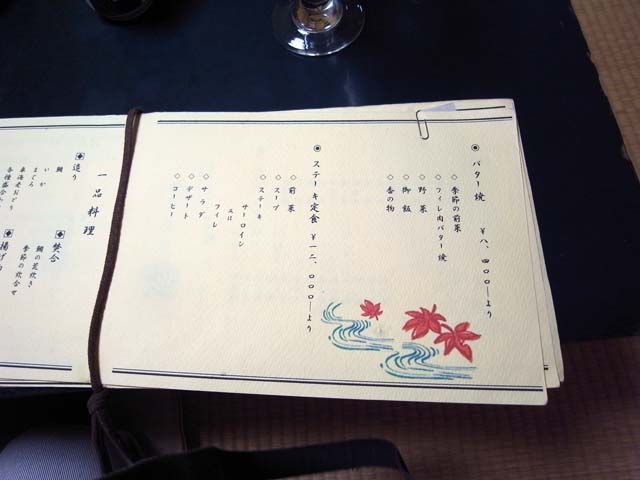 ◉バター焼 ¥八、四〇〇―より
◇季節の前菜
◇フィレ肉バター焼
◇野菜
◇御飯
◇香の物
◉ステーキ定食 ¥一二、〇〇〇―より
◇前菜
◇スープ
◇ステーキ
サーロイン
又は
フィレ
◇サラダ
◇デザート
◇コーヒー
一品料理
造り
鯛
いか
まぐろ
車海老おどり
各種盛合せ
焚合
鯛の荒炊き
季節の炊合せ